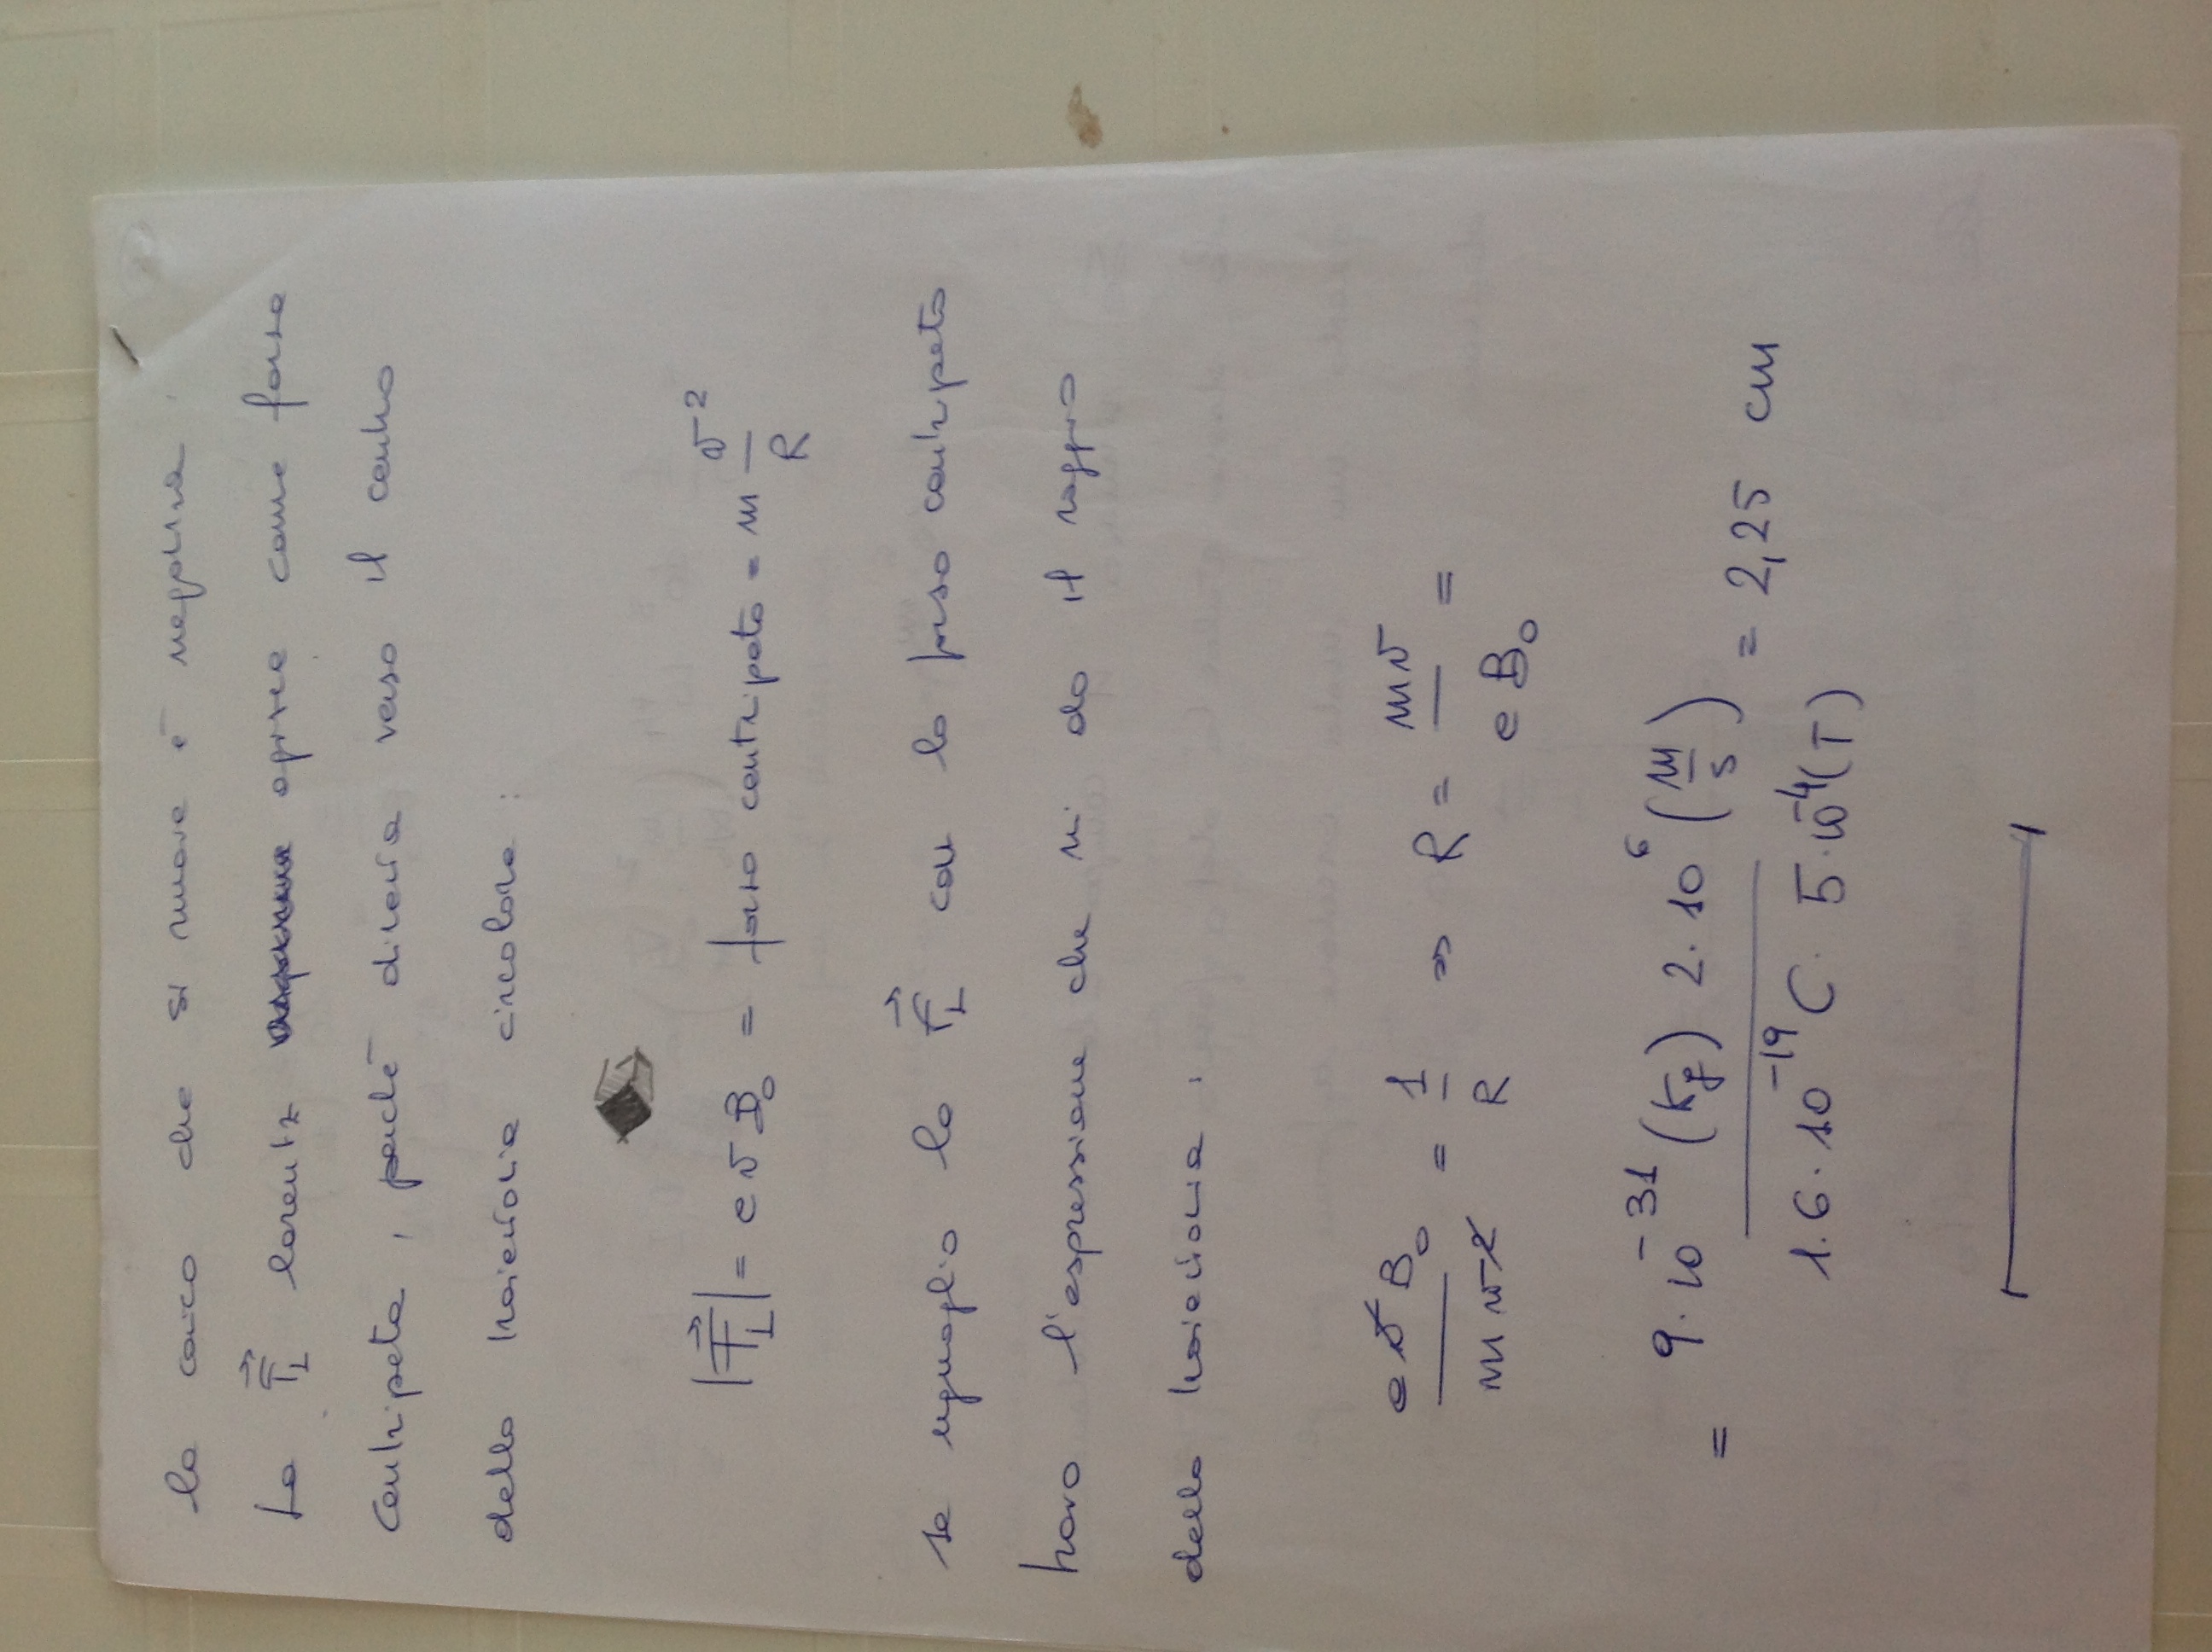 la carica che si muove è negativa.
La F⃗_L Lorentz agisce come forza
centripeta, perchè diretta verso il centro
della traiettoria circolare:
|F⃗_L| = e v B₀ = forza centripeta = m v²/R
se uguaglio la F⃗_L con la forza centripeta
trovo l'espressione che mi da il raggio
della traiettoria:
e v B₀ / m v² = 1/R ⇒ R = m v / e B₀ =
= 9·10⁻³¹ (Kg) 2·10⁶ (m/s) / 1.6·10⁻¹⁹ C · 5·10⁻⁴ (T) = 2,25 cm